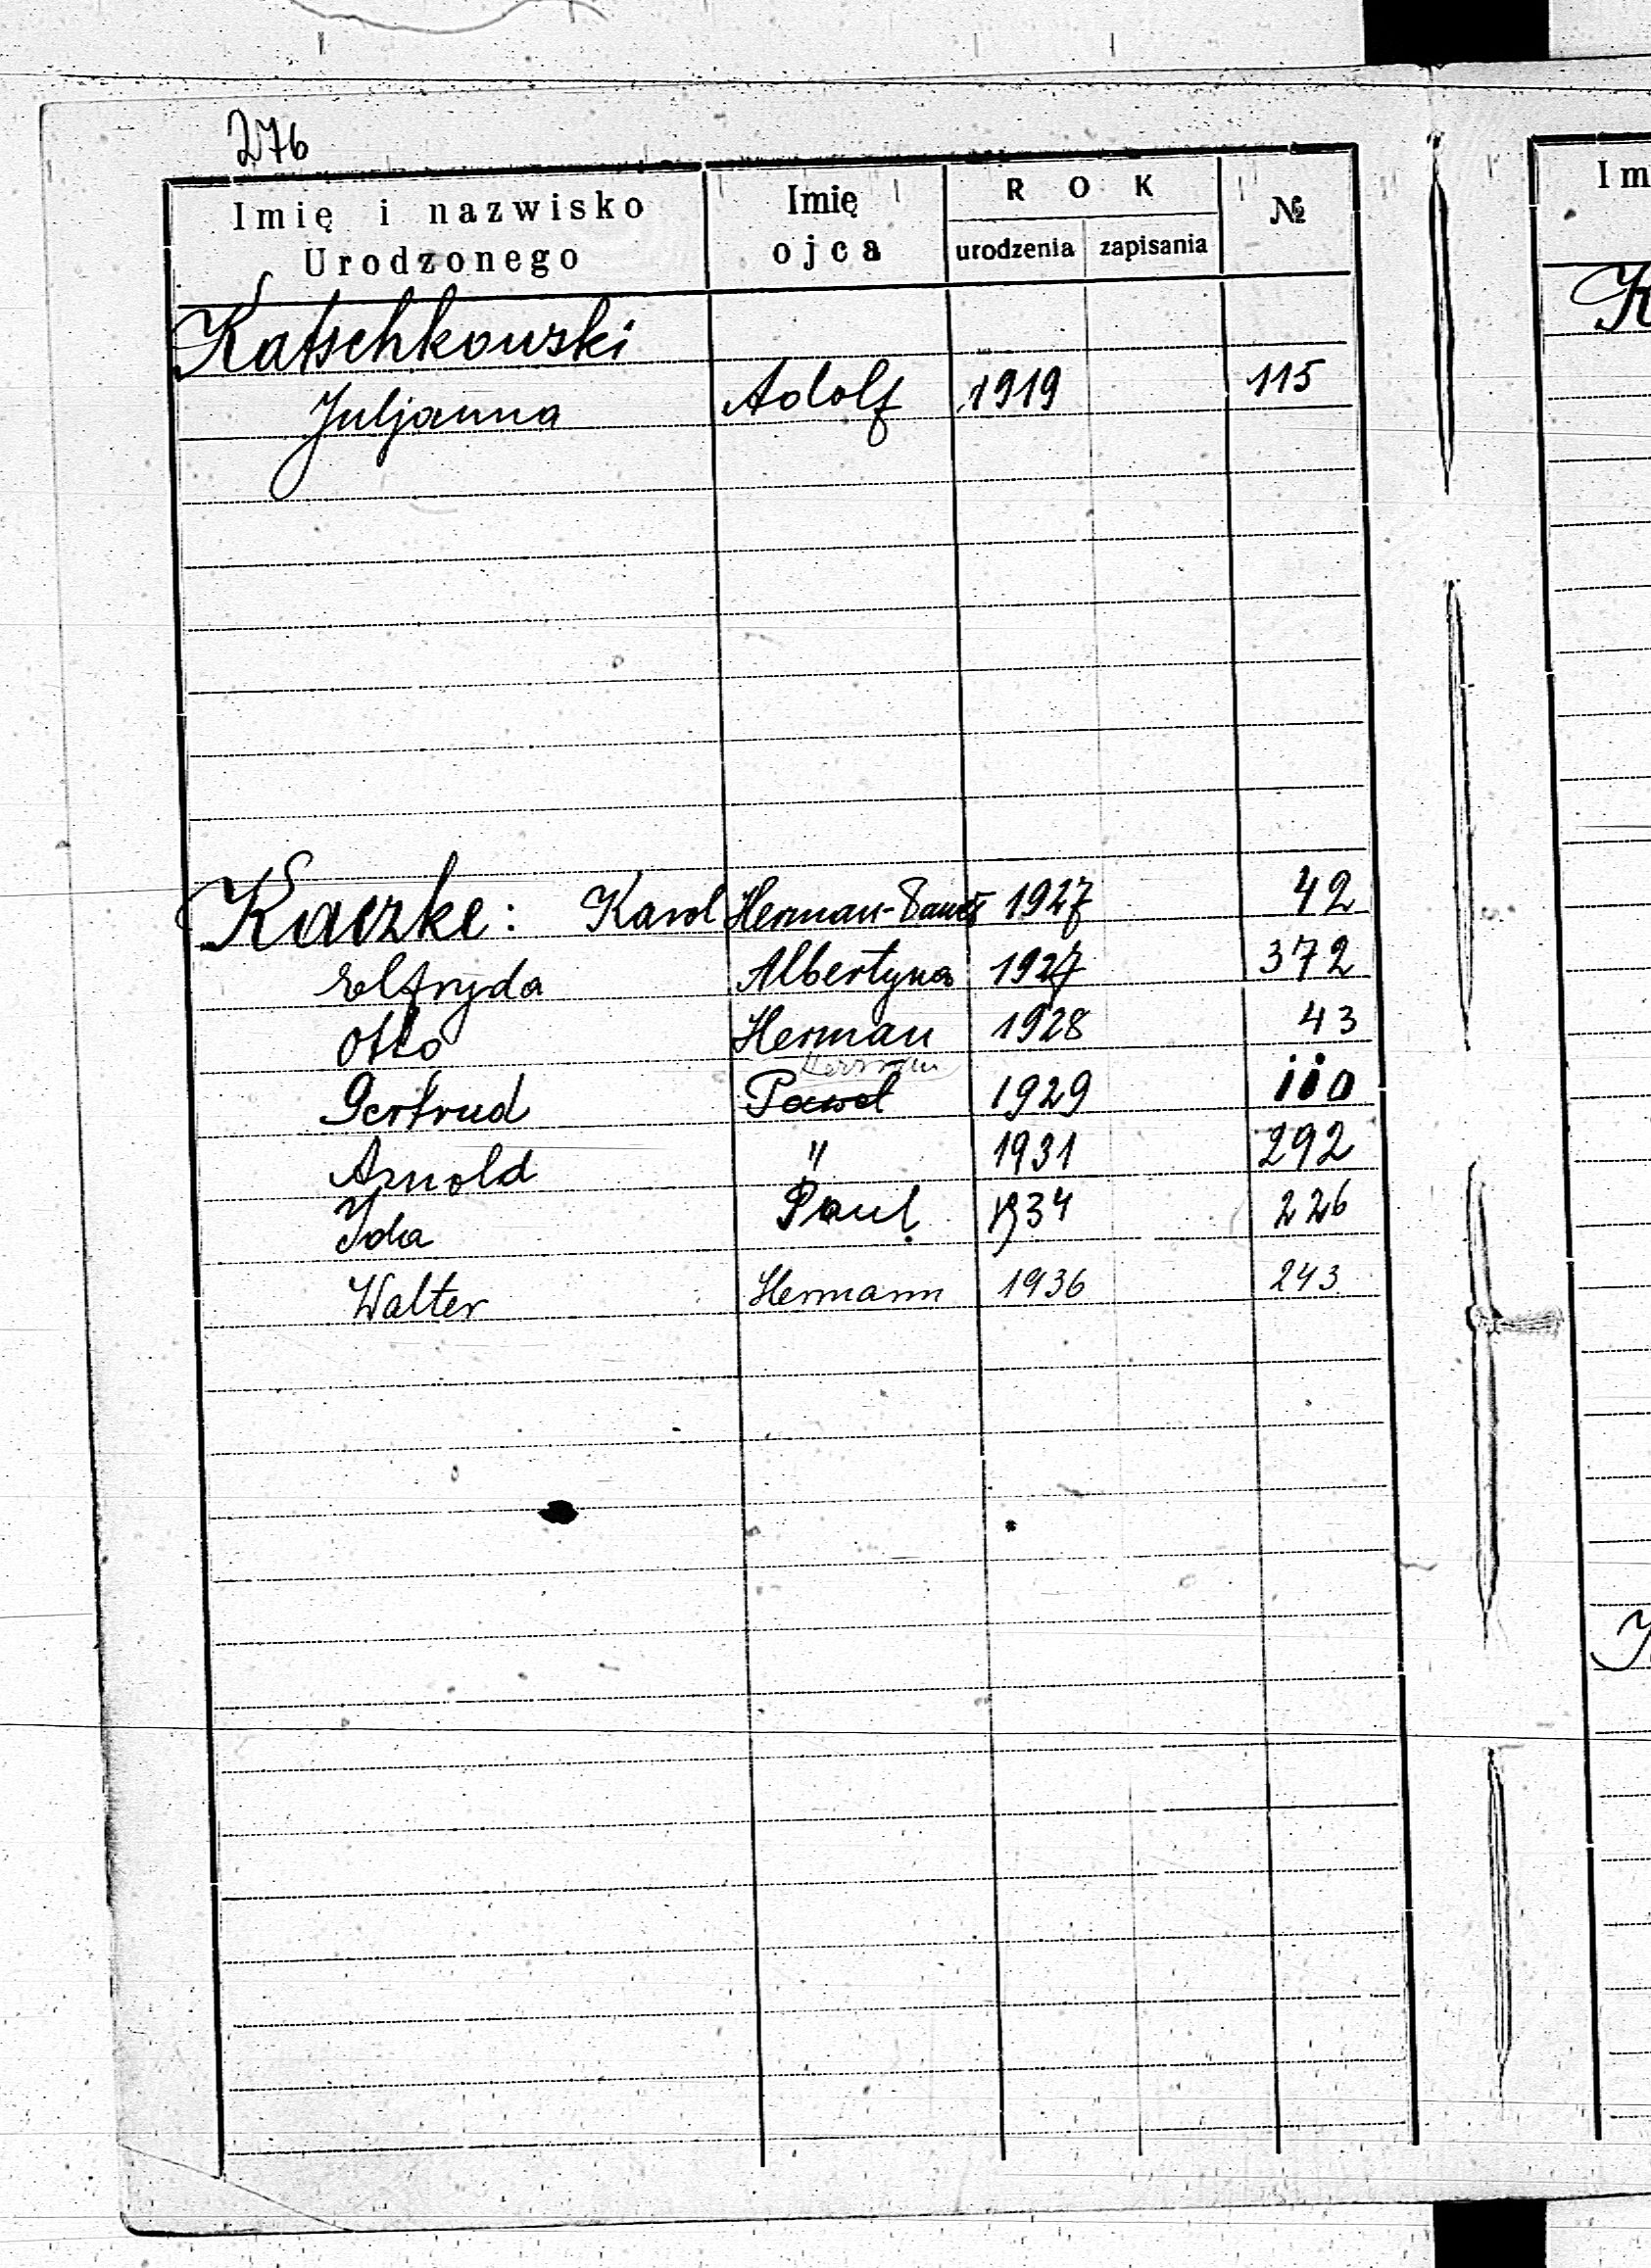 276
Imię i nazwisko Urodzonego Imię ojca ROK urodzenia zapisania №
Katschkowski
Juljanna Adolf 1919 115
Kaczke: Karol Herman-Paweł 1927 42
Elfryda Albertyna 1927 372
Otto Herman 1928 43
Herman
Gertrud Paweł 1929 110
Arnold " 1931 292
Ida Paul. 1934 226
Walter Hermann 1936 243